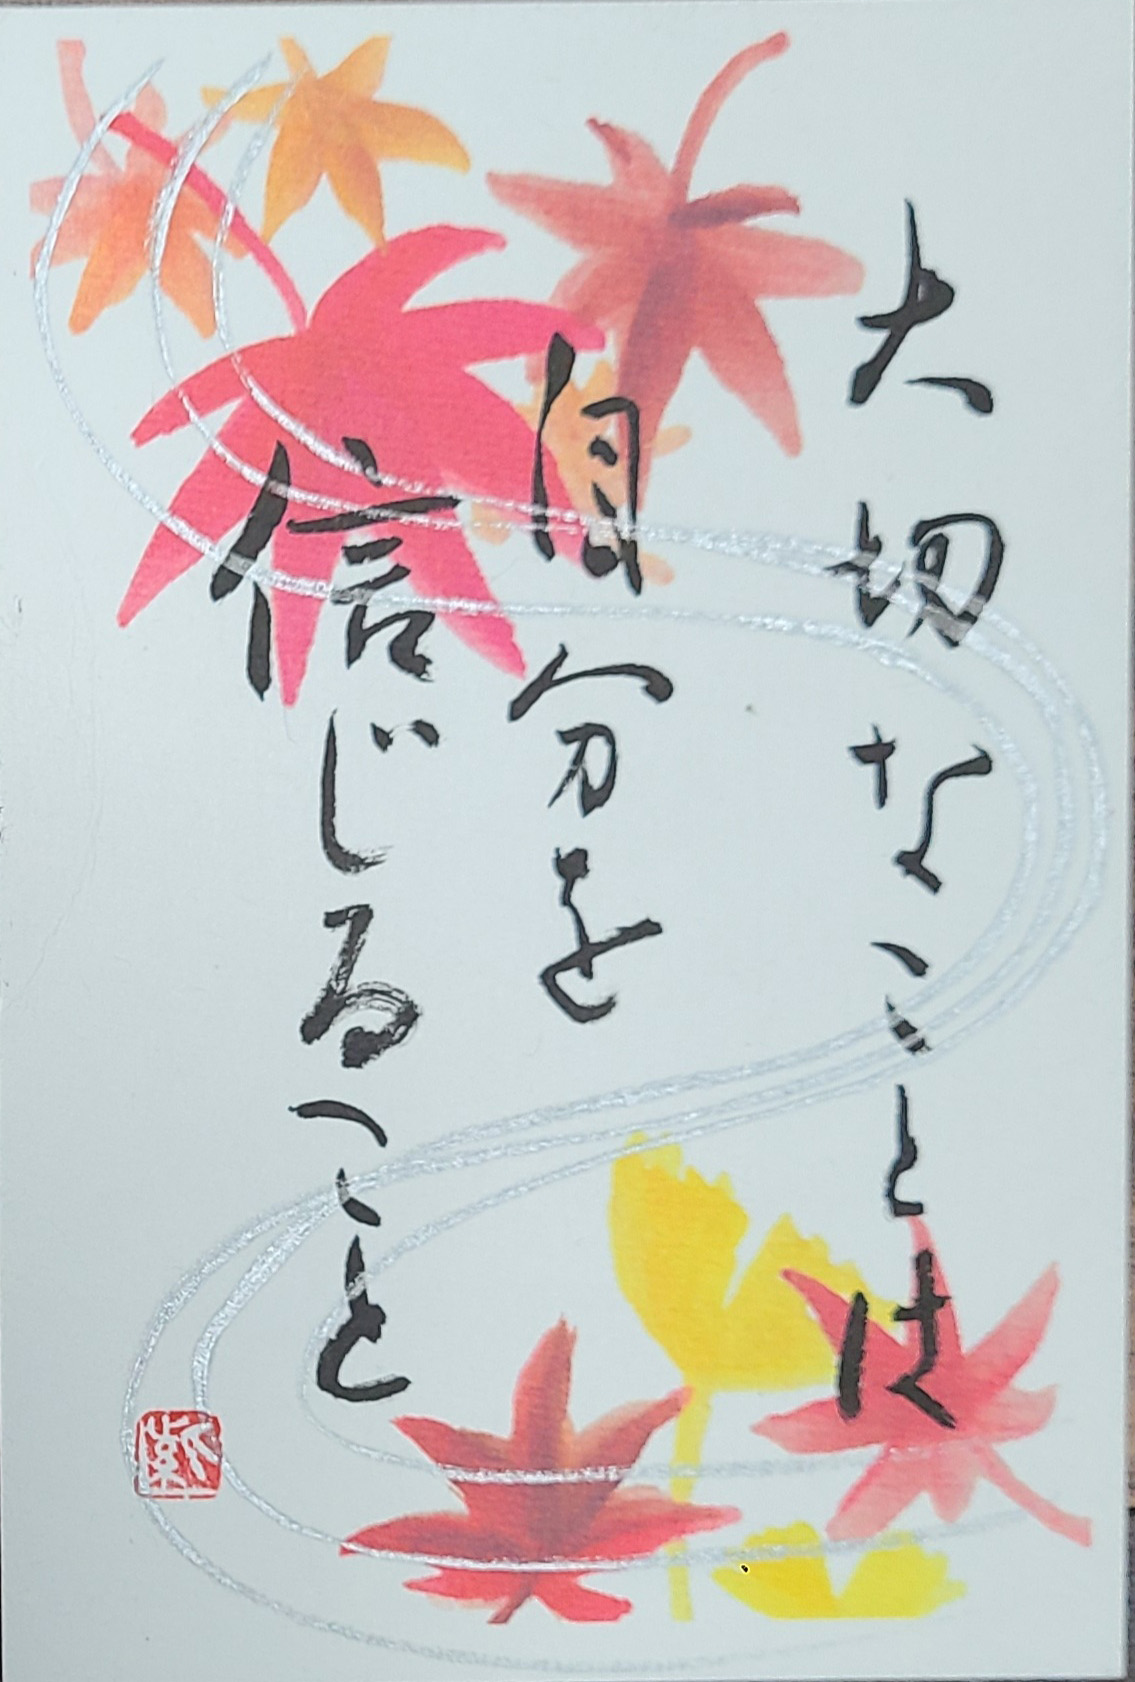 大切なことは
自分を
信じること